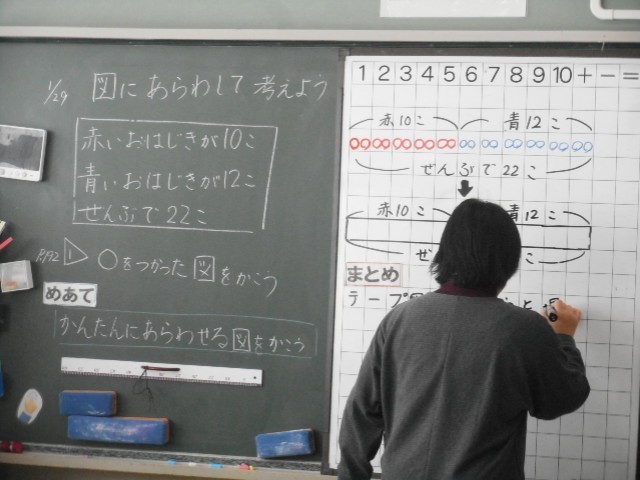 1/29 図にあらわして考えよう
赤いおはじきが10こ
青いおはじきが12こ
ぜんぶで22こ
P.92 1 ○をつかった図をかこう
めあて
かんたんにあらわせる図をかこう
1 2 3 4 5 6 7 8 9 10 + - =
赤10こ 青12こ
ぜんぶで22こ
赤10こ 青12こ
ぜ こ
まとめ
テープ